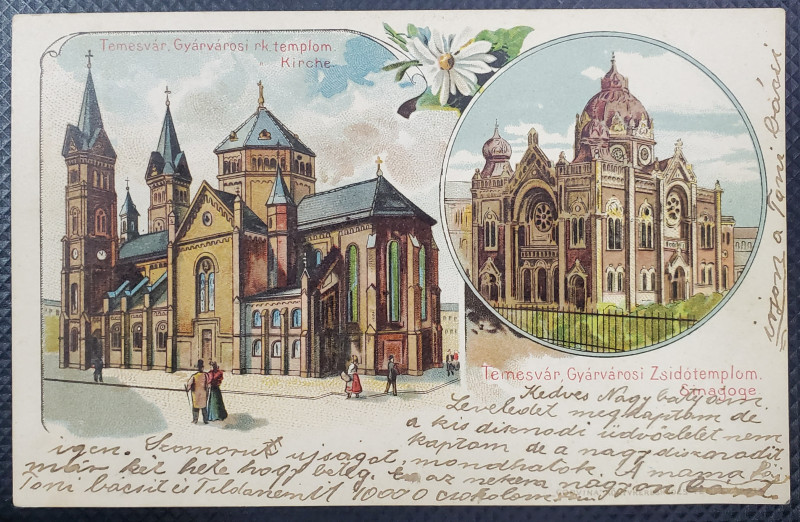 Temesvár, Gyárvárosi rk. templom.
Kirche.
Temesvár, Gyárvárosi Zsidótemplom.
Sinagoge.
Kedves Nagybatyam
Leveledet megkaptam de
a kis disznodi üdvözletet nem
kaptam de a nagy diszaradit
igen. Szomorut ujsagot, mondhatok. A mama
már két hete hogy beteg. az nekem nagyon
Toni bácsit és 10000 csokolom
a Toni bácsi